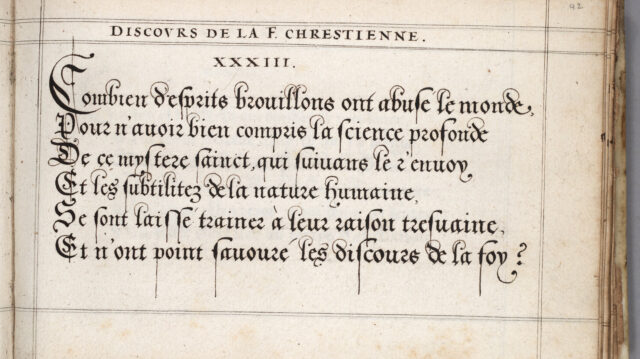 42
DISCOVRS DE LA F. CHRESTIENNE.
XXXIII.
Combien d'esprits brouillons ont abuse le monde,
Pour n'auoir bien compris la science profonde
De ce mystere sainct, qui suiuans le r'enuoy
Et les subtilitez de la nature humaine,
Se sont laissé trainer à leur raison tresuaine,
Et n'ont point sauouré les discours de la foy?